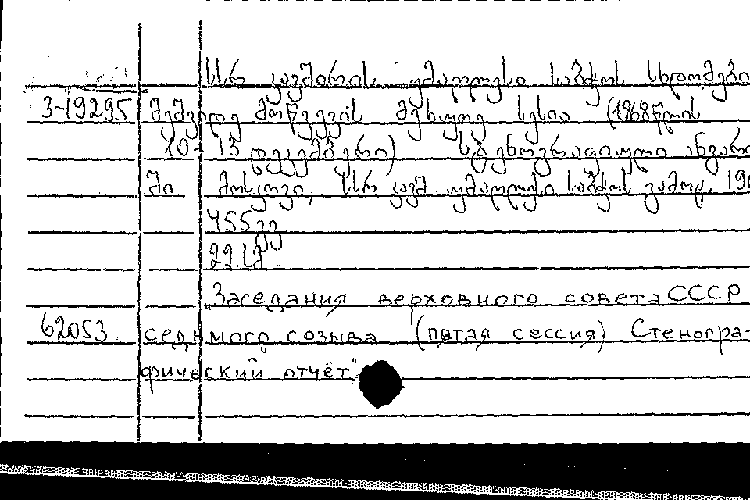 სსრ კავშირის უმაღლესი საბჭოს სხდომები
3-19295 მეშვიდე მოწვევის მეხუთე სესია (1968 წლის
10-13 დეკემბერი) სტენოგრაფიული ანგარი
ში მოსკოვი, სსრ კავშ. უმაღლესი საბჭოს გამოც. 19
455 გვ
Заседания верховного совета СССР
62053 седьмого созыва (пятая сессия) Стеногра-
фический отчёт"